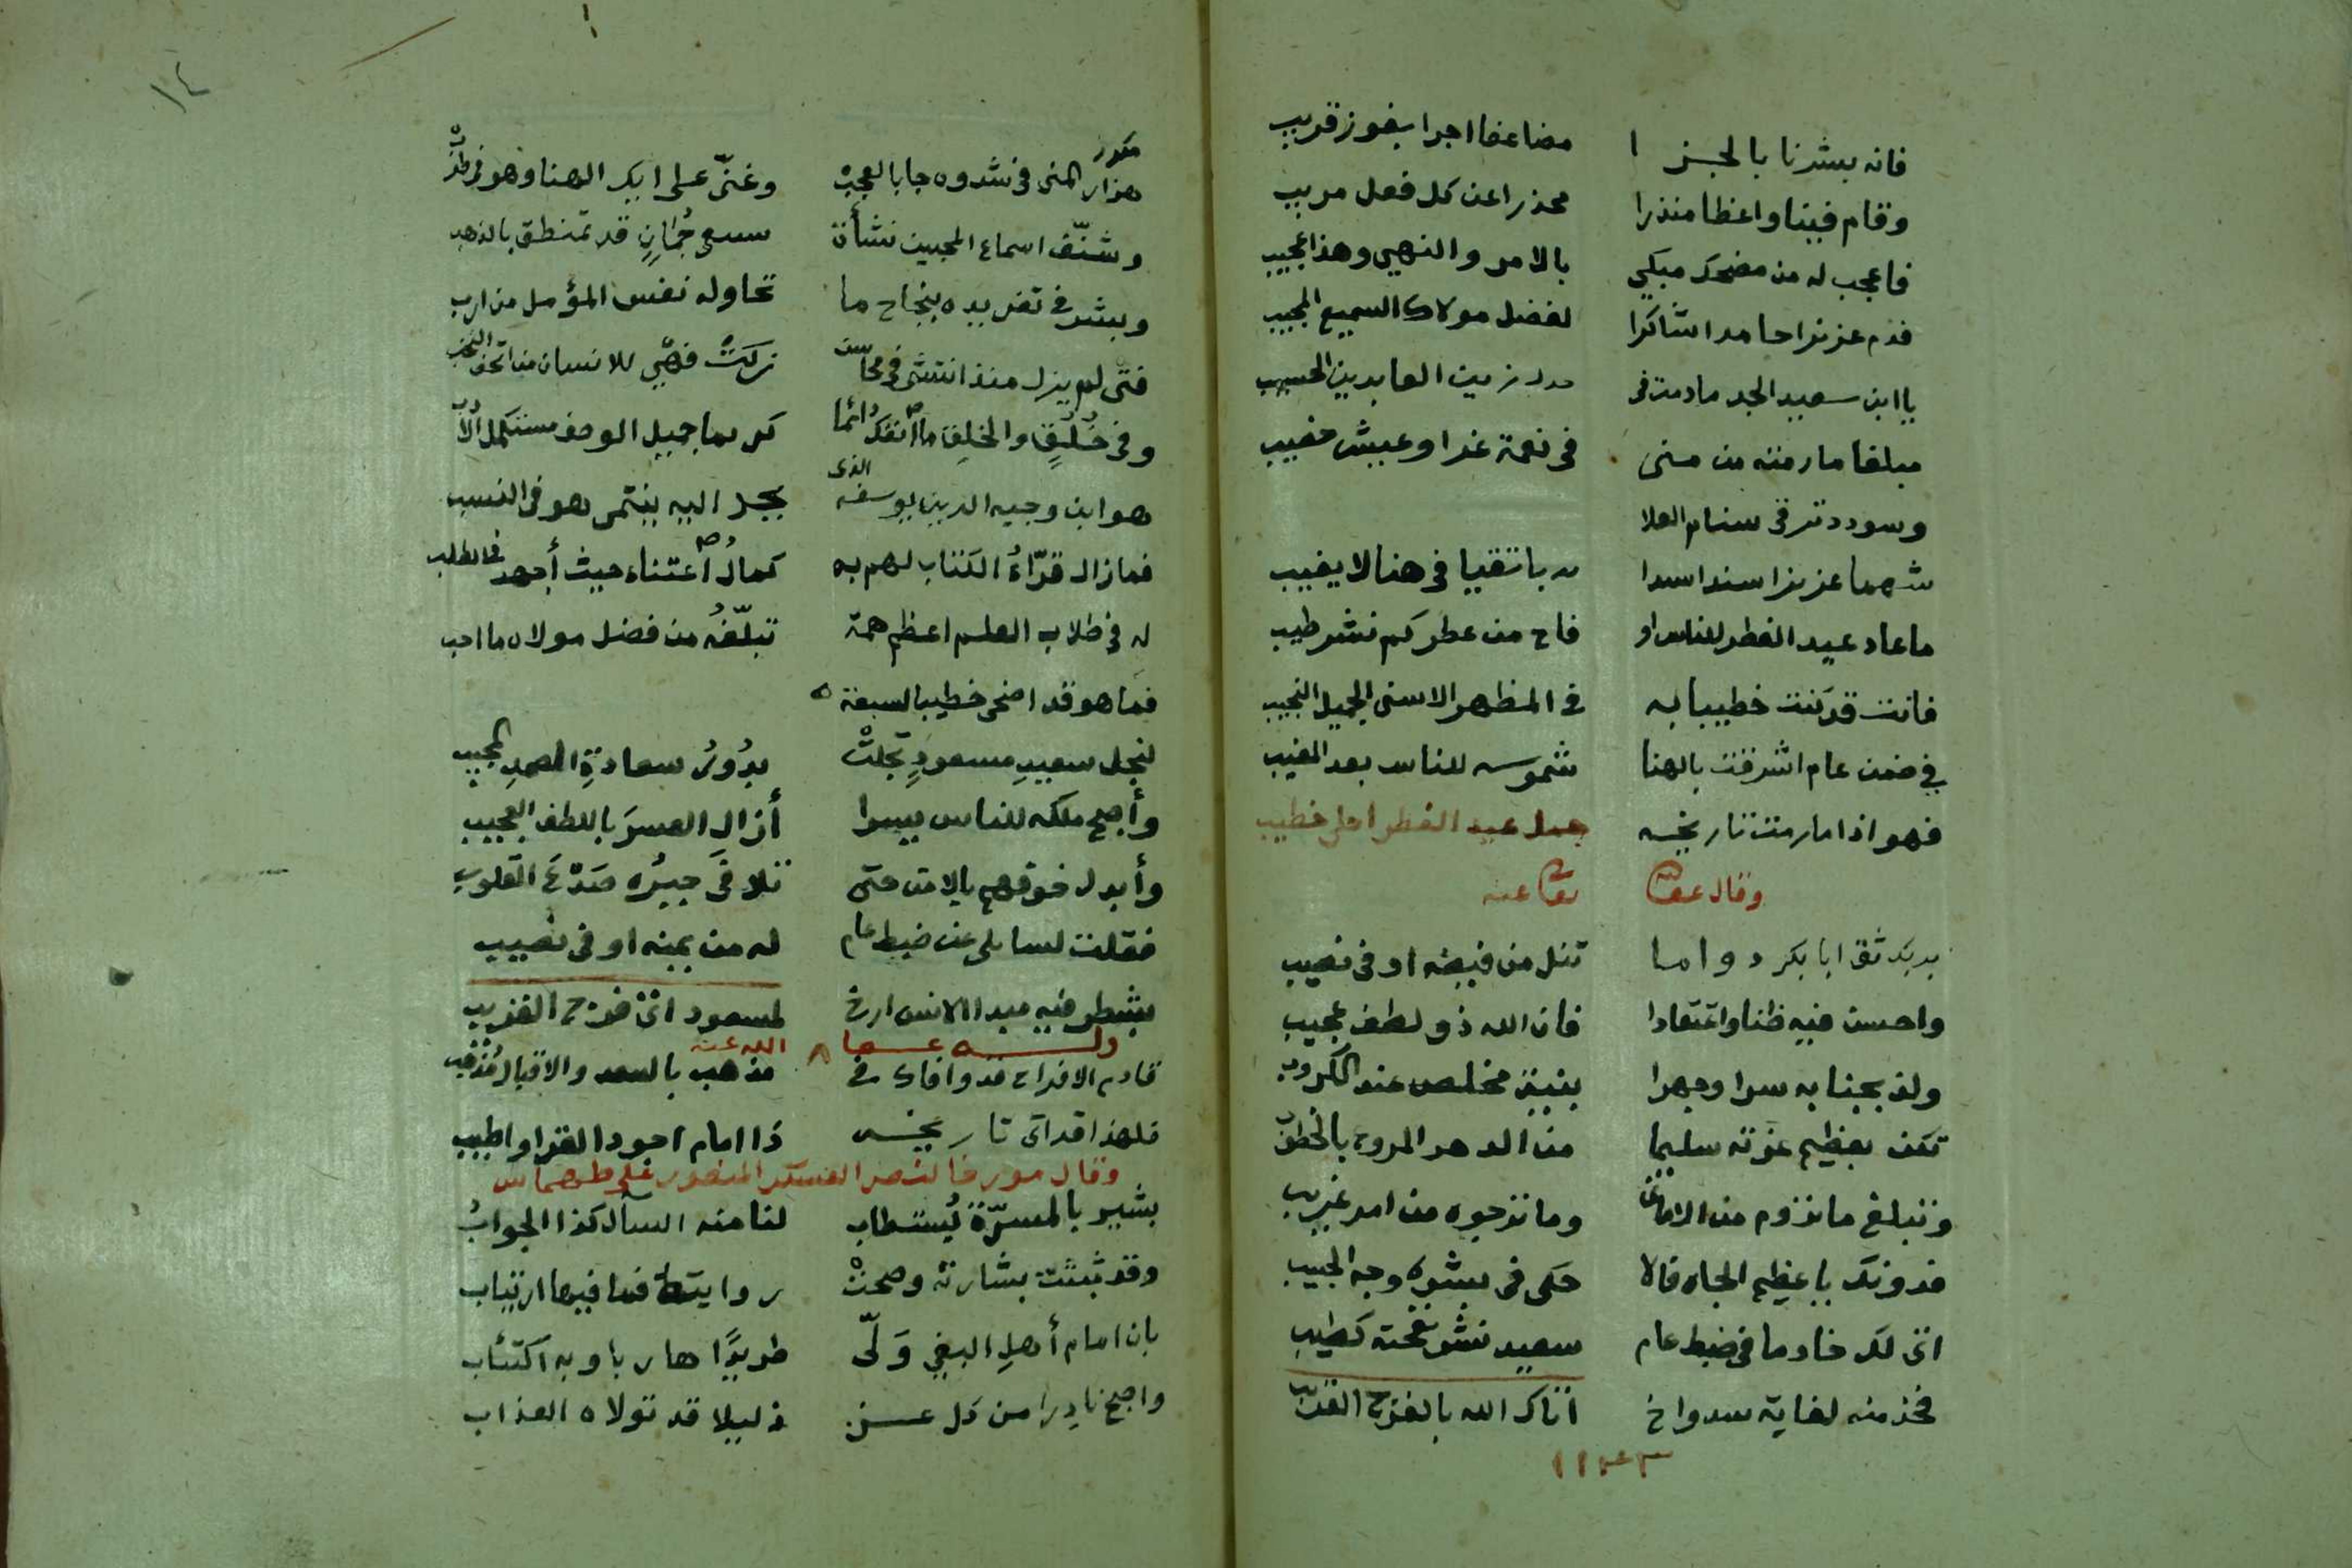 فانه بشرنا بالجزا مضاعفا اجرا بفوز قريب
وقام فينا واعظا منذرا محذرا عن كل فعل مريب
فاعجب له من مضحك مبكي بالامر والنهي وهذا عجيب
فدم عزيزا حامدا شاكرا لفضل مولاك السميع المجيب
يا ابن سعيد الجد مادمت في زين العابدين الحسيب
مبلغا مارمته من منى في نعمة غدا وعيش خصيب
وسوددترقى سنام العلا
شهما عزيزا سندا سيدا باتقيا في هنا لا يغيب
ماعاد عيد الفطر للناس او فاح من عطركم نشر طيب
فانت قد كنت خطيبا به في المظهر الاسنى الجميل النجيب
في ضمن عام اشرقت بالهنا شموسه للناس بعد المغيب
فهو اذا مارمت تاريخه جمل عيد الفطر احلى خطيب
وقال عفا الله تعالى عنه
بربك ثق ابا بكر دواما تنل من فيضه اوفى نصيب
واحسن فيه ظنا واعتقادا فان الله ذو لطف عجيب
ولذ بجنابه سرا وجهرا بنية مخلص عند الكروب
تكن بعظيم عزته سليما من الدهر المروع بالخطوب
وتبلغ ماتروم من الاماني وماترجوه من امر غريب
فدونك ياعظيم الجاه فالا حكى في بشره وجه الحبيب
اتى لك خادما في ضبط عام سعيد نشر نفحته كطيب
فخذ منه لغاية سد وارخ اتاك الله بالفرج القريب
١١٤٣
١٤
هزار المنى في شدوه جا بالعجب وغنى على ايك الهنا وهو في طرب
وشنف اسماع المحبين نشأة سبع جمان قد تمنطق بالذهب
وبشر في تغريده بنجاح ما تحاوله نفس المؤمل من ارب
فتى لم يزل منذ انتشى في محاسن زكت فهي للانسان من اتحف النخب
وفي خلق والخلق ما انفك دائما كريما جميل الوصف مستكمل الادب
هو ابن وجيه الدين يوسف الذى بجد اليه ينتمي وهو في النسب
فمازال قراء الكتاب لهم به كمال اعتناء حيث أجهد في الطلب
له في طلاب العلم اعظم همة تبلغه من فضل مولاه ما احب
فما هو قد اضحى خطيبا لسبعة
لنجل سعيد مسعود تجلت بدور سعادة الصمد المجيب
وأصبح ملكه للناس يسرا أزال العسر باللطف العجيب
وأبدل خوفهم بالامن حتى تلافى جبره صدع القلوب
فقلت لسايلي عن ضبط عام له من يمنه اوفى نصيب
بشطر فيه مبدا الانس ارخ لمسعود اتى فرج القريب
وله عفا الله عنه
قادم الافراح قد وافاك في مذهب بالسعد والاقبال مذهب
فلهذا قد اتى تاريخه ذا امام اجود القرا واطيب
وقال مورخا لنصر العسكر المنصور على طهماس
بشير بالمسرة يستطاب لنا منه السأل كذا الجواب
وقد ثبتت بشارته وصحت روايتها فما فيها ارتياب
بان امام أهل البغي ولى طريدا هاربا وبه اكتئاب
واصبح نادرا من كل عز ذليلا قد تولاه العذاب